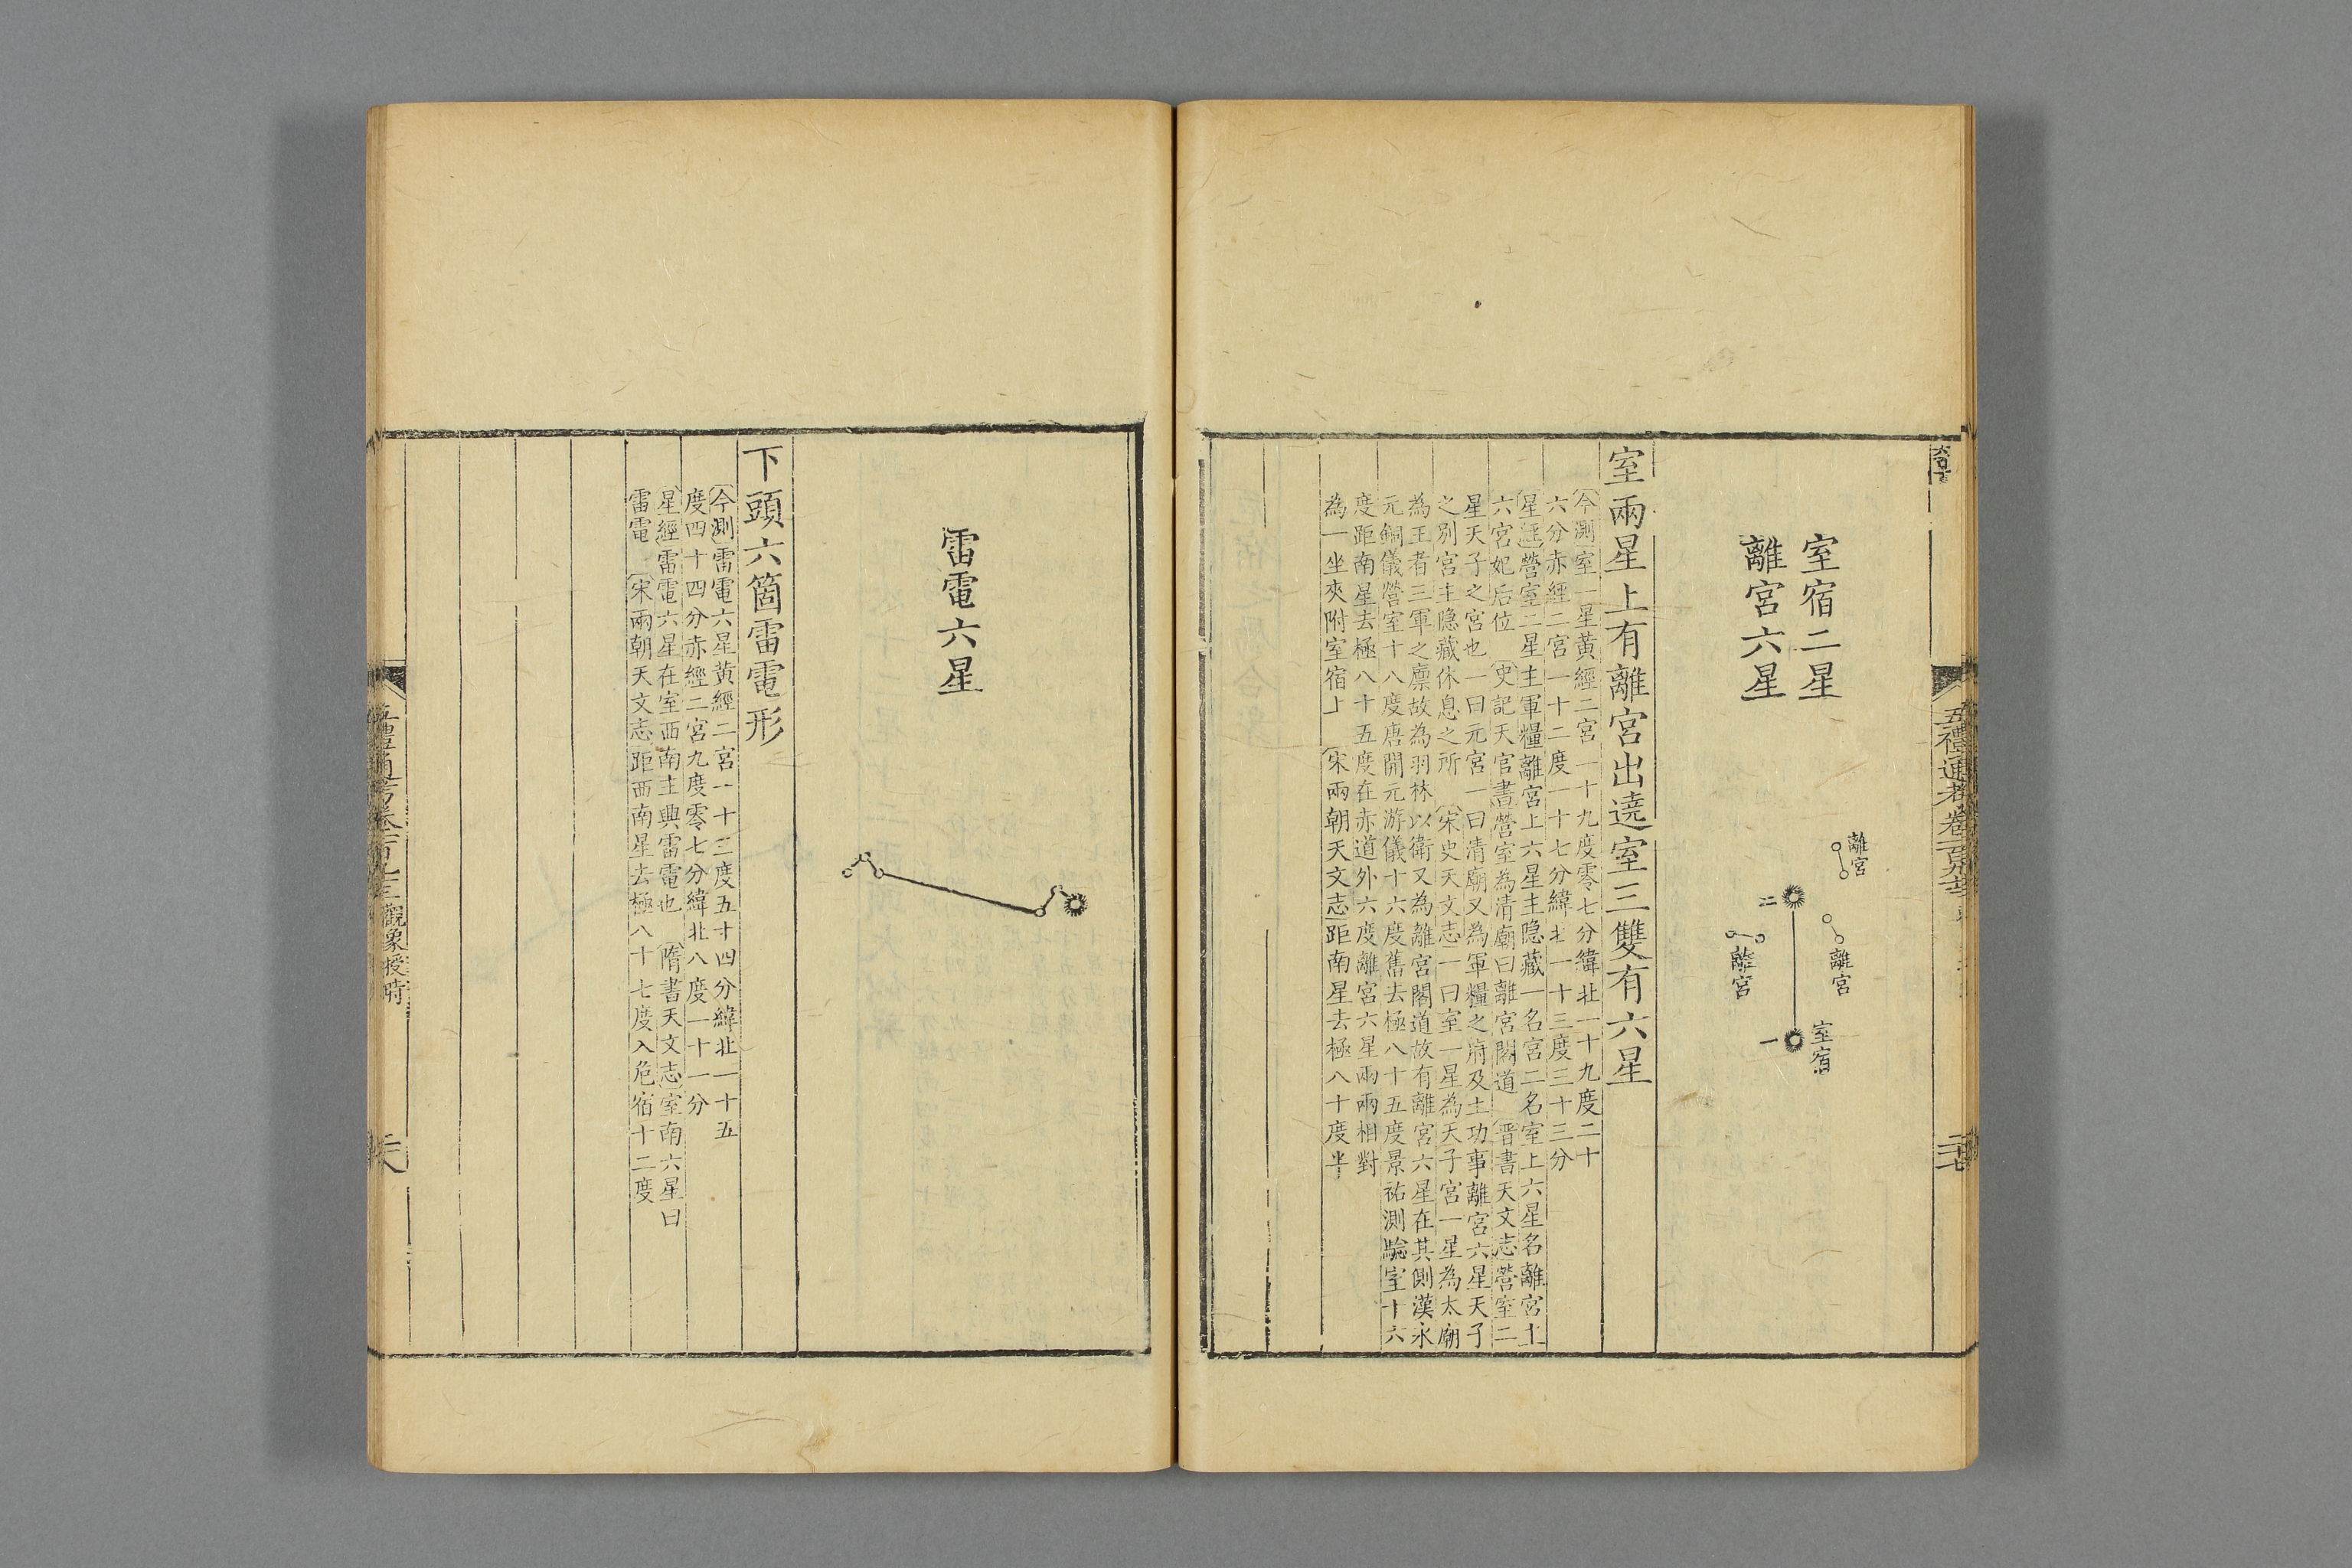 五禮通考卷一百九十三
二十七
室宿二星
離宮六星
離宮
離宮
二
離宮
室宿
一
室兩星上有離宮出遶室三雙有六星
今測室一星黃經二宮一十九度零七分緯北一十九度二十
六分赤經二宮一十二度一十七分緯北一十三度三十三分
星經營室二星主軍糧離宮上六星主隐藏一名宮二名室上六星名離宮土
六宮妃后位 史記天官書營室為清廟曰離宮閣道 晋書天文志營室二
星天子之宮也一曰元宮一曰清廟又為軍糧之府及土功事離宮六星天子
之別宮主隐藏休息之所 宋史天文志一曰室一星為天子宮一星為太廟
為王者三軍之廪故為羽林以衛又為離宮閣道故有離宮六星在其側漢永
元銅儀營室十八度唐開元游儀十六度舊去極八十五度景祐測驗室十六
度距南星去極八十五度在赤道外六度離宮六星兩兩相對
為一坐夾附室宿上 宋兩朝天文志距南星去極八十度半
雷電六星
下頭六箇雷電形
今測雷電六星黃經二宮一十三度五十四分緯北一十五
度四十四分赤經二宮九度零七分緯北八度一十一分
星經雷電六星在室西南主興雷電也 隋書天文志室南六星曰
雷電 宋兩朝天文志距西南星去極八十七度入危宿十二度
五禮通考卷一百九十三 觀象授時
二十八